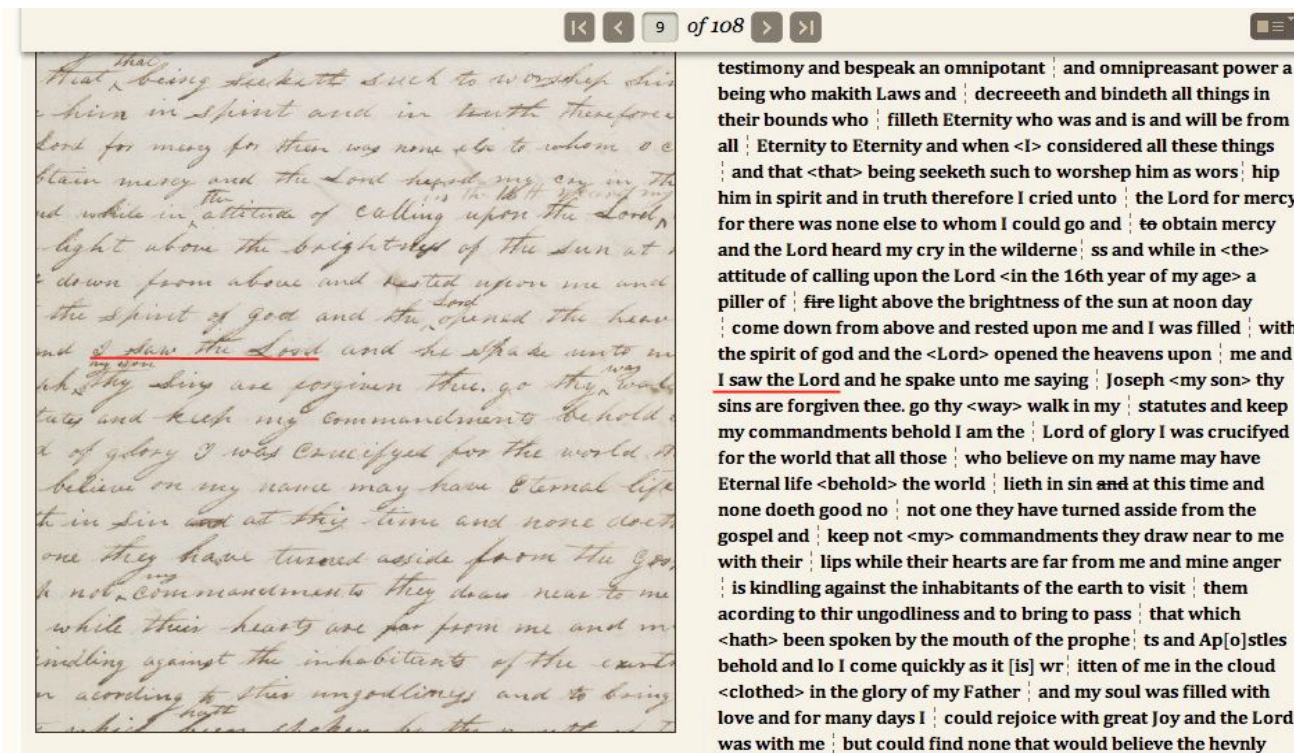 9 of 108
that
that being seeketh such to worshep him
him in spirit and in truth therefore
Lord for mercy for there was none else to whom I c
btain mercy and the Lord heard my cry in the
the in the 16th year of my
nd while in attitude of calling upon the Lord
light above the brightness of the sun at
down from above and rested upon me and
Lord
the spirit of god and the opened the heav
nd I saw the Lord and he spake unto m
my son way
ph thy sins are forgiven thee. go thy walk
tutes and keep my commandments behold
d of glory I was crucifyed for the world th
believe on my name may have Eternal life
th in sin and at this time and none doeth
one they have turned asside from the gos
my
p not commandments they draw near to me
while their hearts are far from me and m
kindling against the inhabitants of the earth
m acording to thir ungodliness and to bring
hath
t which been spoken by the mouth of t
testimony and bespeak an omnipotant ¦ and omnipreasant power a
being who makith Laws and ¦ decreeeth and bindeth all things in
their bounds who ¦ filleth Eternity who was and is and will be from
all ¦ Eternity to Eternity and when <I> considered all these things
¦ and that <that> being seeketh such to worshep him as wors¦ hip
him in spirit and in truth therefore I cried unto ¦ the Lord for mercy
for there was none else to whom I could go and ¦ to obtain mercy
and the Lord heard my cry in the wilderne¦ ss and while in <the>
attitude of calling upon the Lord <in the 16th year of my age> a
piller of ¦ fire light above the brightness of the sun at noon day
¦ come down from above and rested upon me and I was filled ¦ with
the spirit of god and the <Lord> opened the heavens upon ¦ me and
I saw the Lord and he spake unto me saying ¦ Joseph <my son> thy
sins are forgiven thee. go thy <way> walk in my ¦ statutes and keep
my commandments behold I am the ¦ Lord of glory I was crucifyed
for the world that all those ¦ who believe on my name may have
Eternal life <behold> the world ¦ lieth in sin and at this time and
none doeth good no ¦ not one they have turned asside from the
gospel and ¦ keep not <my> commandments they draw near to me
with their ¦ lips while their hearts are far from me and mine anger
¦ is kindling against the inhabitants of the earth to visit ¦ them
acording to thir ungodliness and to bring to pass ¦ that which
<hath> been spoken by the mouth of the prophe¦ ts and Ap[o]stles
behold and lo I come quickly as it [is] wr¦ itten of me in the cloud
<clothed> in the glory of my Father ¦ and my soul was filled with
love and for many days I ¦ could rejoice with great Joy and the Lord
was with me ¦ but could find none that would believe the hevnly